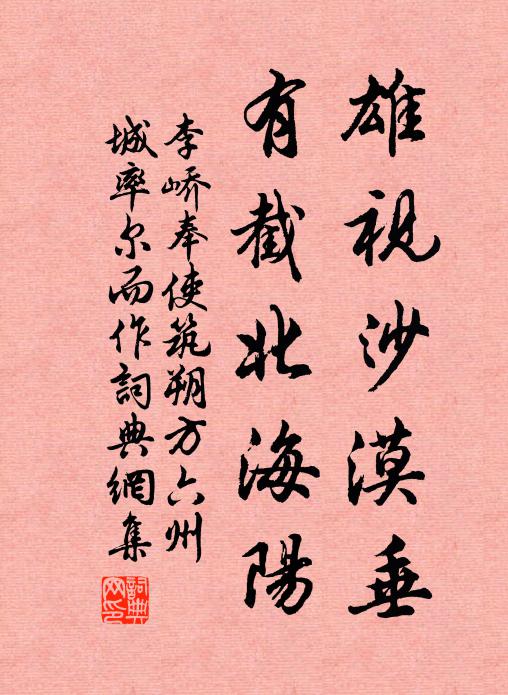 雄視沙漠垂
有截北海陽
李峤奉使筑朔方六州
城率尔而作詞典網集
詞典網印